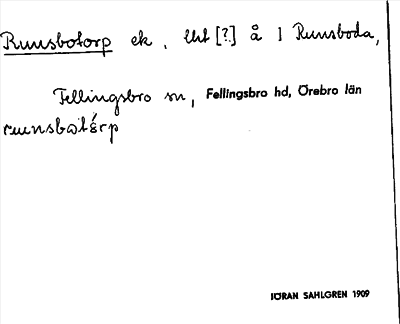 Runsbotorp ek. lht [?] å 1 Runsboda,
Fellingsbro sn, Fellingsbro hd, Örebro län
runsbatǿrp
JÖRAN SAHLGREN 1909